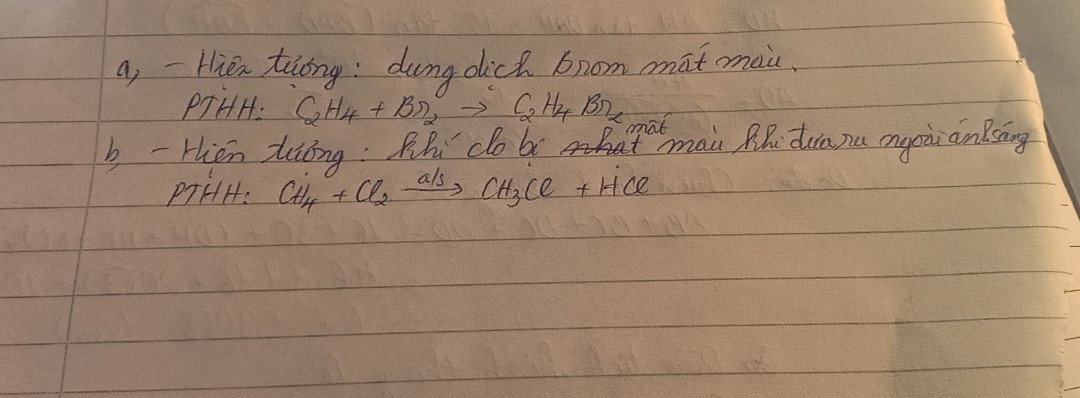 a, - Hiện tượng: dung dịch brom mất màu.
PTHH: C₂H₄ + Br₂ → C₂H₄Br₂
b, - Hiện tượng: khí clo bị mất màu khi đưa ra ngoài ánh sáng
PTHH: CH₄ + Cl₂ a/s → CH₃Cl + HCl